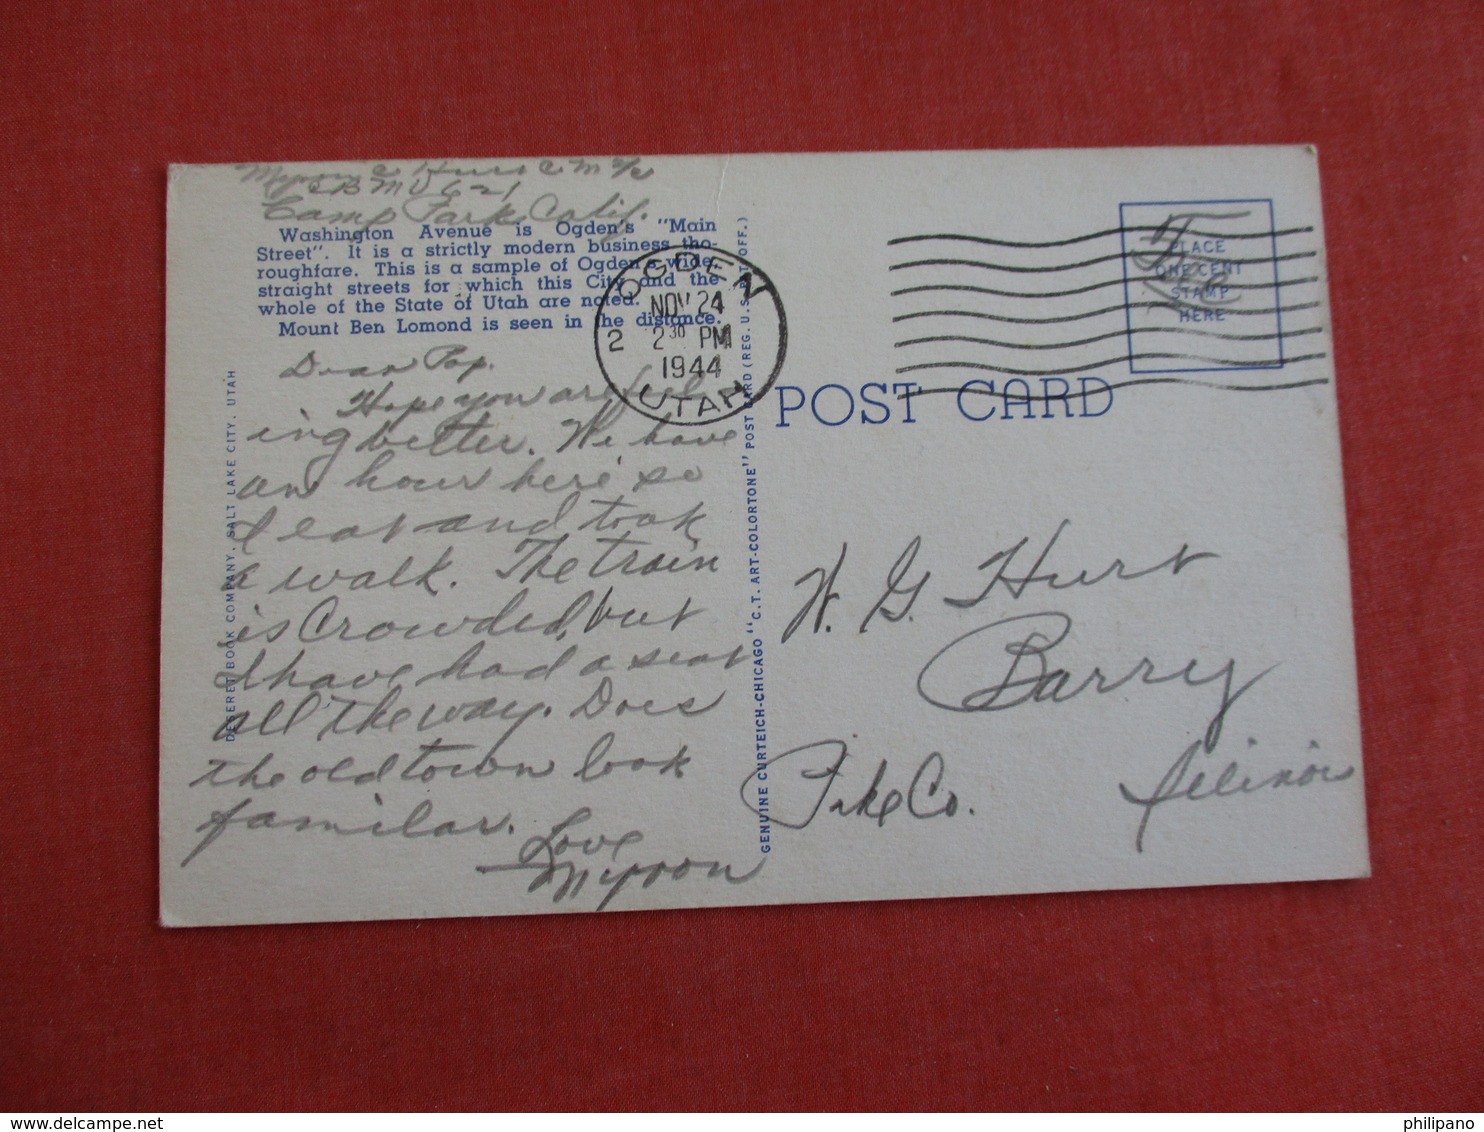 Myron C Hurt C M 2/c
CBMU 621
Camp Parks, Calif.
Washington Avenue is Ogden's "Main
Street". It is a strictly modern business tho-
roughfare. This is a sample of Ogden's wide,
straight streets for which this City and the
whole of the State of Utah are noted.
Mount Ben Lomond is seen in the distance.
OGDEN
NOV 24
2 2 30 PM
1944
UTAH
Dear Pop.
Hope you are feel
ing better. We have
an hour here so
I eat and took
a walk. The train
is crowded, but
I have had a seat
all the way. Does
the old town look
familar.
Love
Myron
DESERET BOOK COMPANY, SALT LAKE CITY, UTAH
GENUINE CURTEICH-CHICAGO "C.T. ART-COLORTONE" POST CARD (REG. U.S. PAT. OFF.)
POST CARD
Free
PLACE
ONE CENT
STAMP
HERE
W. G. Hurt
Barry
Pike Co. Illinois
delcampe.net
philipano